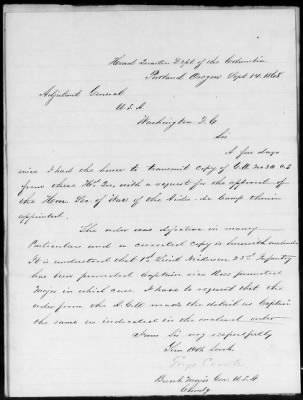 Head Quarters Dept of the Columbia
Portland Oregon Sept 14 1868
Adjutant General
U.S.A
Washington D.C
Sir
A few days
since I had the honor to transmit copy of G.O. No
from these Hd Qrs, with a request for the approval of
the Hon. Sec of War of the Aide-de Camp therein
appointed.
The order was defective in many
Particulars and a corrected copy is herewith enclosed
It is understood that 1st Lieut 23rd Infantry
has been promoted Captain vice Ross promoted
Major in which case I have to request that the
order from the A.G.O made the detail as Captain
the same as indicated in the enclosed order
I am Sir very respectfully
Your Obt Servt
Geo Crook
Brevt Major Gen U.S.A
Comdg